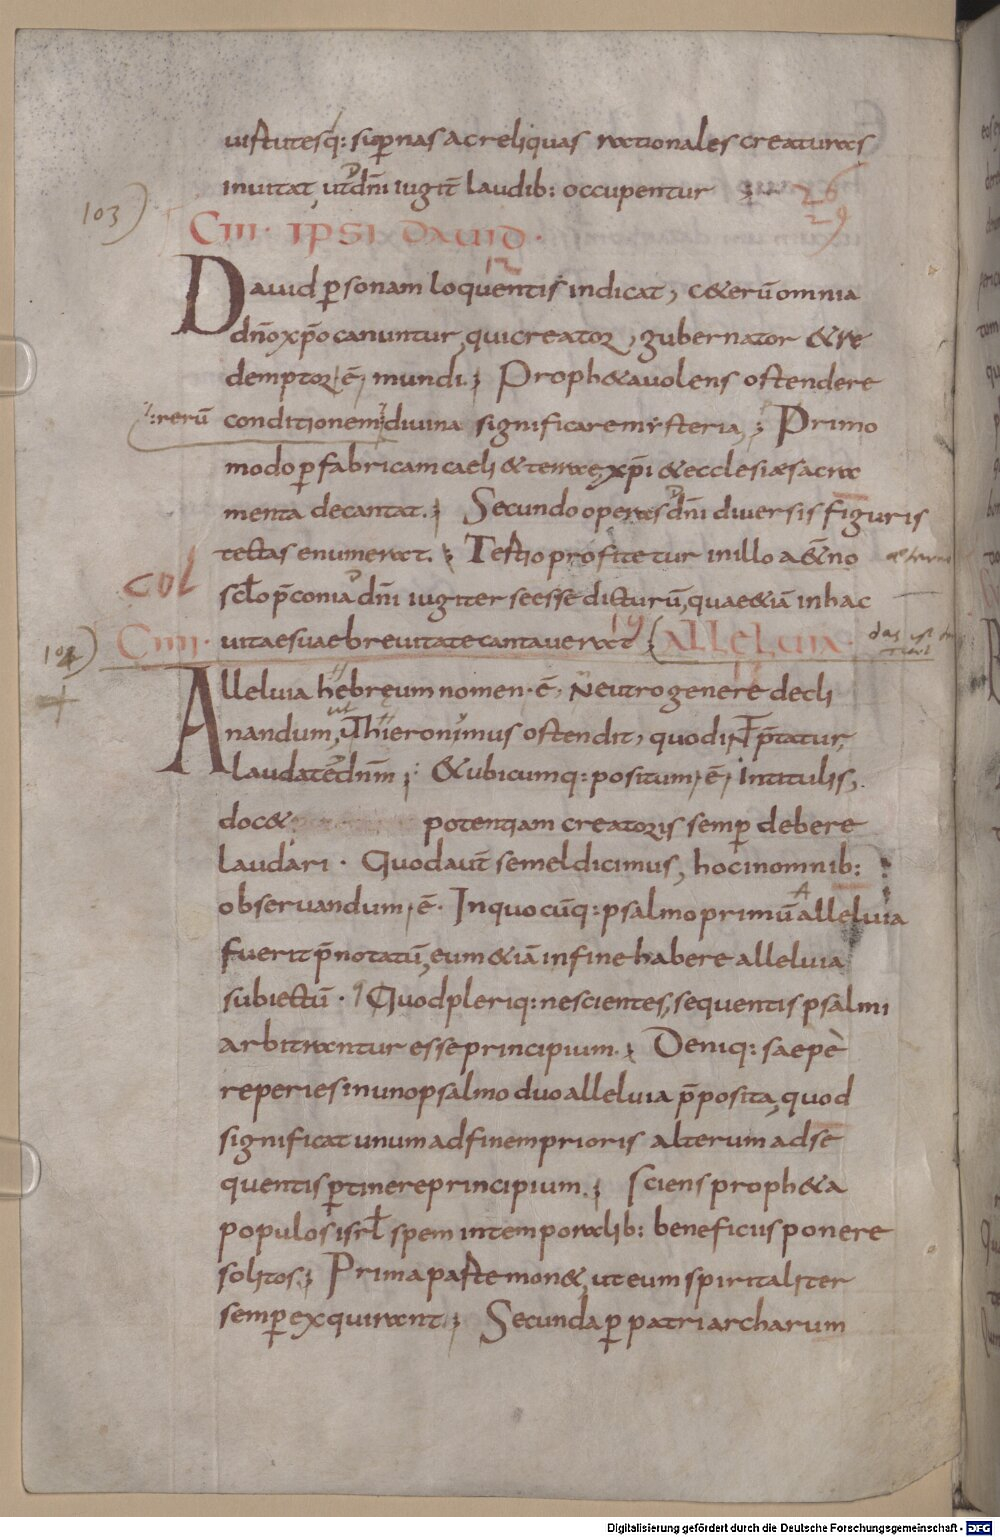 uirtutesq: sup̄nas ac reliquas rationales creaturas
inuitat, ut dn̄i iugit̄ laudib: occupentur ;
26
29
103)
CIII · IPSI DAUID ·
12
Dauid p̱sonam loquentis indicat, c&erū omnia
dn̄o xp̄o canuntur, qui creator, gubernator & re
demptor, ē, mundi ; Proph&a uolens ostendere
:rerū conditionem, diuina significare mẏsteria, ; Primo
modo p̱ fabricam caeli & terrae, xp̄i & ecclesiae sacra
menta decantat ; Secundo operas dn̄i diuersis figuris
tectas enumerat ; Tertio profitetur in illo a&̄no
aeterno
COL
scl̄o p̄conia dn̄i iugiter se esse dicturū, quae &iā in hac
104)
CIIII · uitae suae breuitate cantauerat (ALLELUIA ·
das ist
Alleluia hebreum nomen · ē, Neutro genere decli
nandum, ut hieronimus ostendit, quod int̄p̄tatur,
laudate dn̄m ; & ubicumq: positum, ē, in titulis,
doc& potentiam creatoris semp̱ debere
laudari · Quod aut̄ semel dicimus, hoc in omnib:
obseruandum, ē · In quocūq: psalmo primū alleluia
fuerit p̄notatū, eum &iā in fine habere alleluia
subiectū · Quod pleriq: nescientes, sequentis psalmi
arbitrantur esse principium ; Deniq: saepè
reperies in uno psalmo duo alleluia p̄posita, quod
significat unum ad finem prioris alterum ad se
quentis p̱tinere principium ; Sciens proph&a
populos isrl̄ spem in temporalib: beneficiis ponere
solitos ; Prima parte mon&, ut eum spiritaliter
semp̱ exquirant ; Secunda p̱ patriarcharum
Digitalisierung gefördert durch die Deutsche Forschungsgemeinschaft - DFG